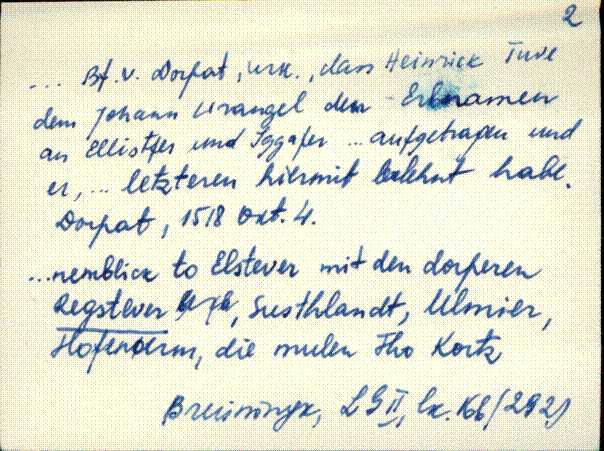 2
... Bf. v. Dorpat, urk., dass Heinrich Tuve
dem Johann Wrangel den Erbnamen
an Ellistfer und Iggafer ... aufgetragen und
er, ... letzteren hiermit belehnt habe.
Dorpat, 1518 Okt. 4.
...nemblick to Elstever mit den dorperen
Regstever, Susthlandt, Ulmier,
die mulen tho Kortz
LG II, (292)